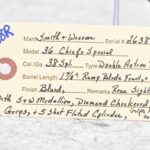 Manf. Smith + Wesson Serial # 2638
Model 36 Chiefs Special
Cal. .38 Spl. Type Double Action
Barrel Length 1 7/8" Ramp Blade Front,
Finish Blued Rear Sight
With S+W Medallion, Diamond Checkered
Grips, + 5 Shot Fluted Cylinder,